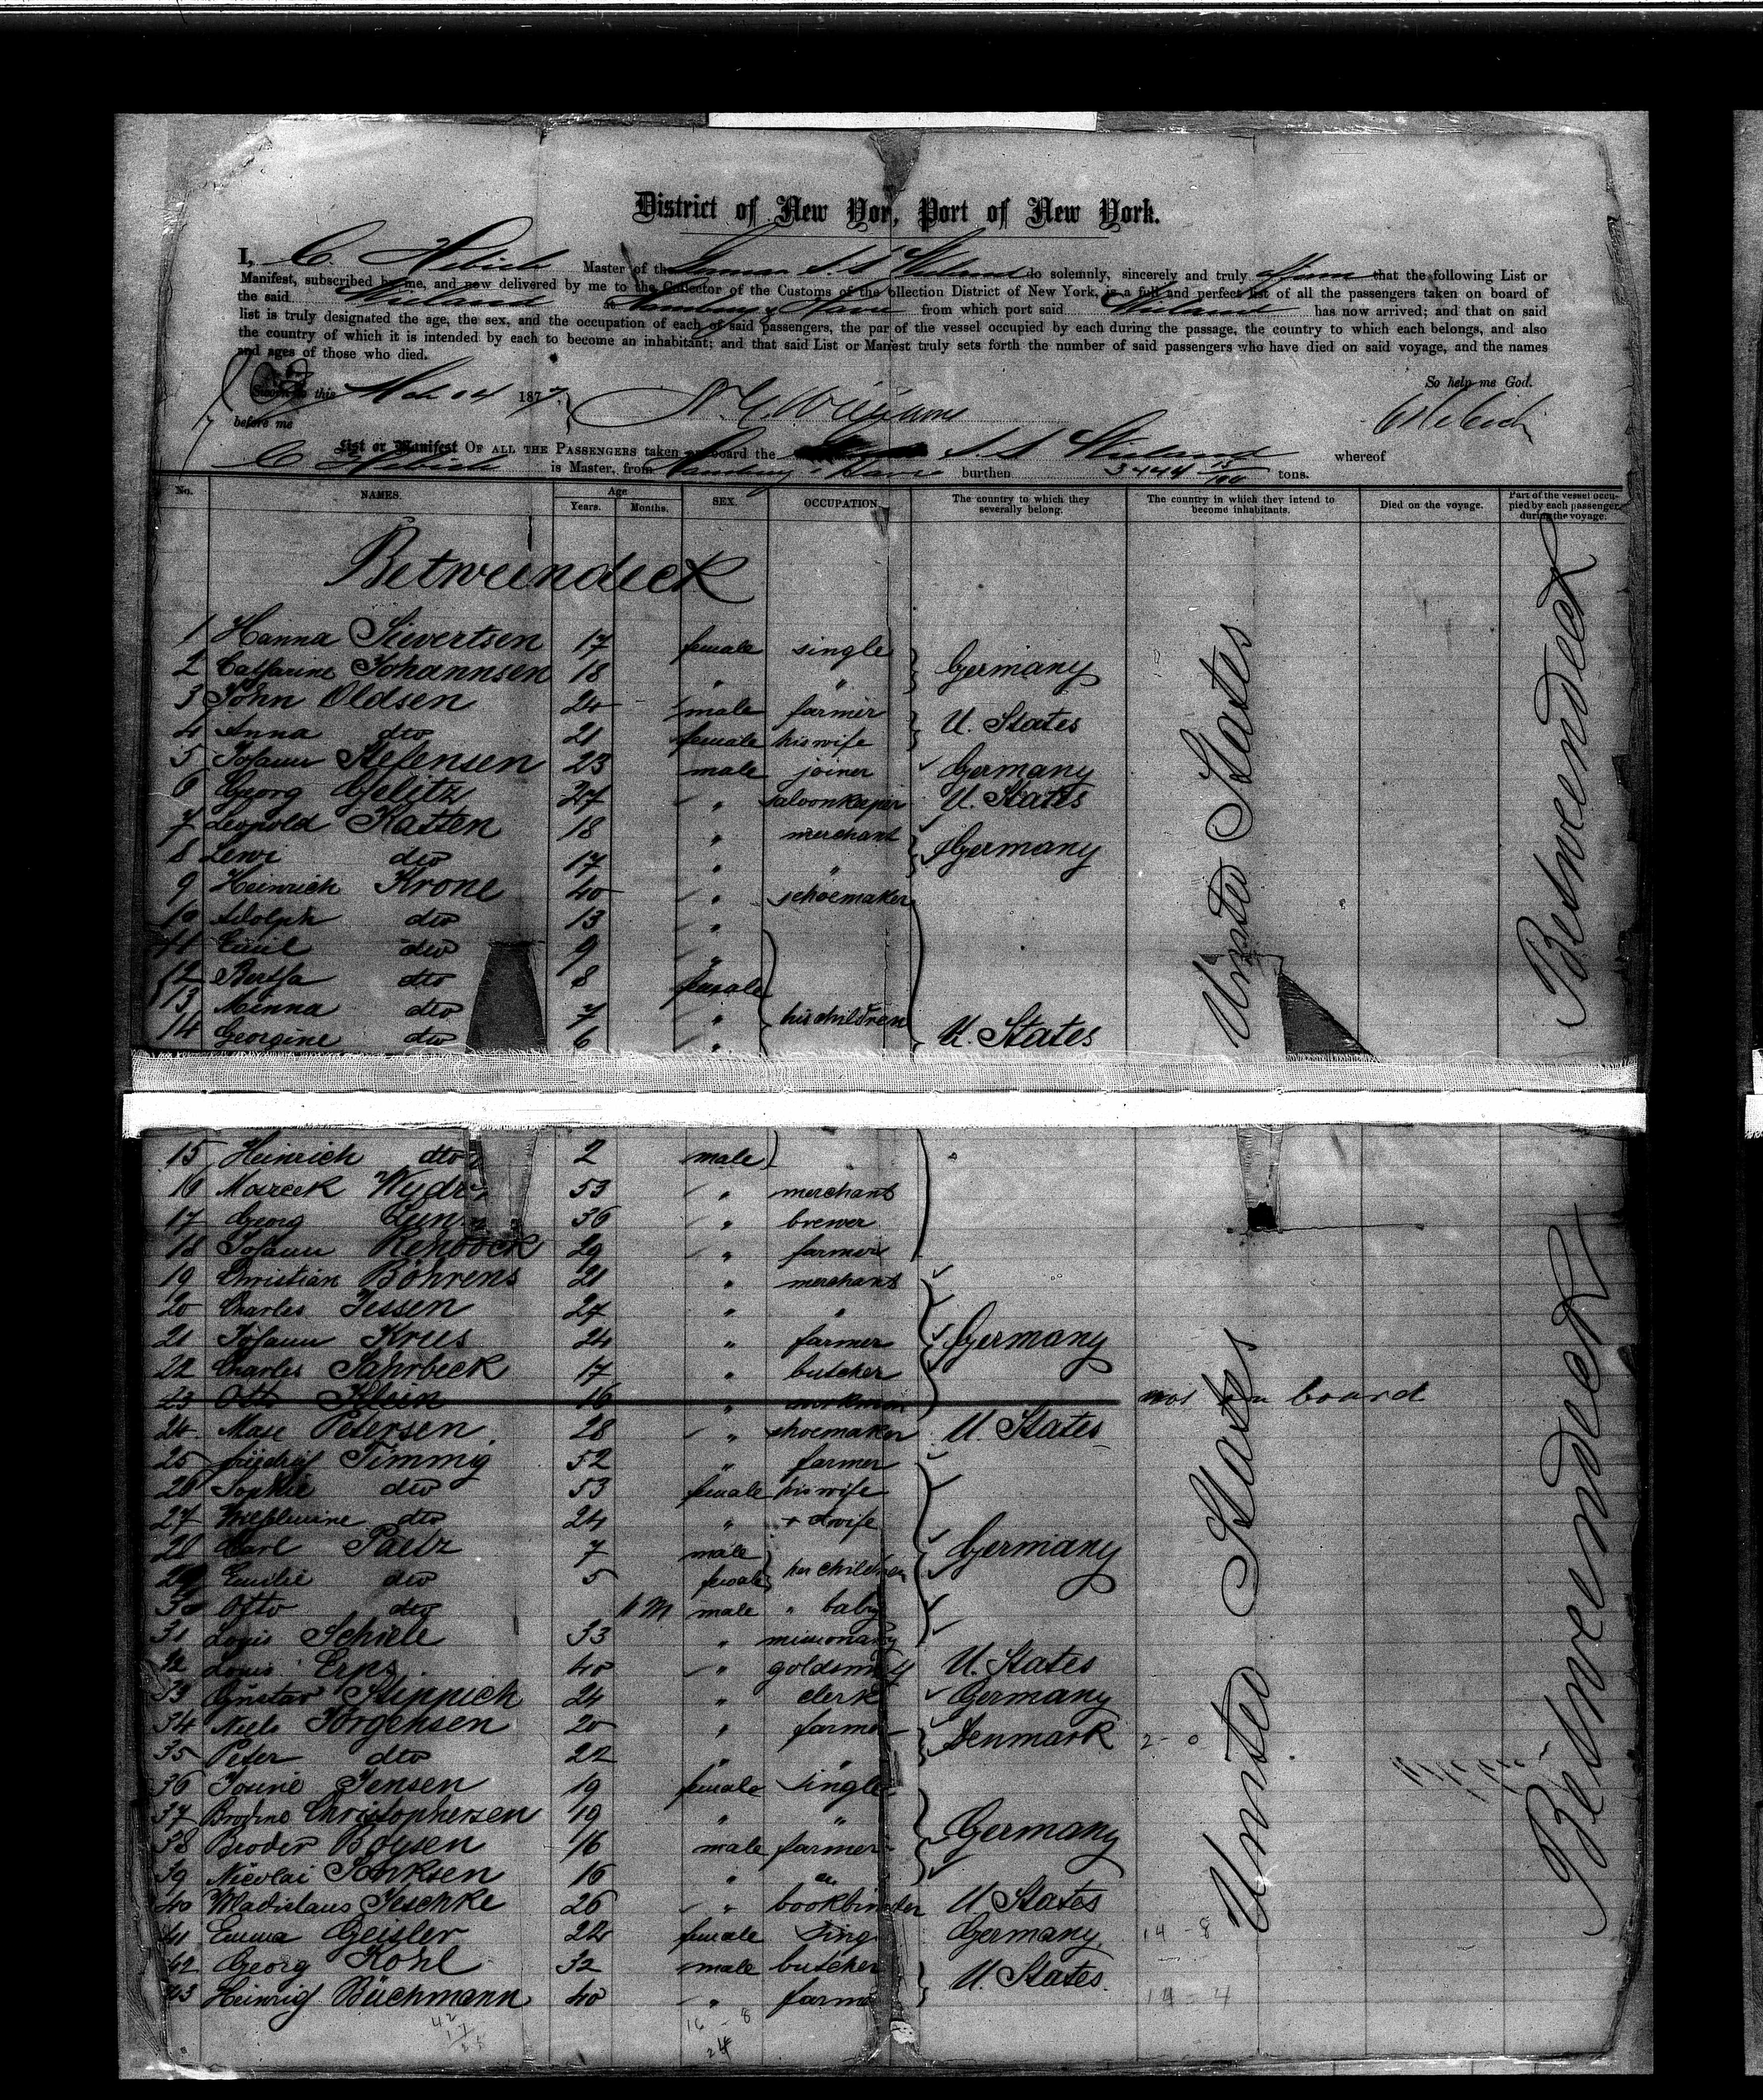 District of New Yor, Port of New York.
I, C. Hebich Master of the German S.S. Wieland do solemnly, sincerely and truly affirm that the following List or
Manifest, subscribed by me, and now delivered by me to the Collector of the Customs of the ollection District of New York, is a full and perfect list of all the passengers taken on board of
the said Wieland at Hamburg & Havre from which port said Wieland has now arrived; and that on said
list is truly designated the age, the sex, and the occupation of each of said passengers, the par of the vessel occupied by each during the passage, the country to which each belongs, and also
the country of which it is intended by each to become an inhabitant; and that said List or Manest truly sets forth the number of said passengers who have died on said voyage, and the names
and ages of those who died.
So help me God.
Sworn to this 14 187
before me
C Hebich
List or Manifest OF ALL THE PASSENGERS taken on board the S.S Wieland whereof
C Hebich is Master, from Hamburg & Havre burthen 3444 15/100 tons.
No. NAMES. Age Years. Months. SEX. OCCUPATION. The country to which they severally belong. The country in which they intend to become inhabitants. Died on the voyage. Part of the vessel occupied by each passenger during the voyage.
Betweendeck
1 Hanna Sievertsen 17 female single
2 Catharine Johannsen 18 " " Germany
3 John Oldsen 24 male farmer
4 Anna dto 21 female his wife U. States
5 Johann Stefensen 23 male joiner Germany
6 Georg Gelitz 27 " saloonkeeper U. States
7 Leopold Katten 18 " merchant
8 Lewi dto 17 " " Germany
9 Heinrich Krone 40 " schoemaker
10 Adolph dto 13 "
11 Emil dto 9 "
12 Bertha dto 8 female
13 Minna dto 7 " his children
14 Georgine dto 6 " U. States
United States
Betweendeck
15 Heinrich dto 2 male
16 Mareek 53 " merchant
17 Georg 36 " brewer
18 Johann Rehbock 29 " farmer
19 Christian Böhrens 21 " merchant
20 Charles Jessen 27 " "
21 Johann Krus 24 " farmer Germany
22 Charles Sahrbeck 17 " butcher
23 Otto Klein 16 " workman not on board
24 Max Petersen 28 " shoemaker U. States
25 Friedrich Timmig 52 " farmer
26 Sophie dto 53 female his wife
27 Wilhelmine dto 24 "
28 Carl Paetz 7 male
29 Emilie dto 5 female her children Germany
30 Otto dto 11 M male " baby
31 Louis Schiele 33 " missionary
32 Louis Erps 40 " U. States
33 Gustav Stinnich 24 " clerk Germany
34 Niels Jörgensen 20 " farmer
35 Peter dto 22 " " Denmark
36 Jensen 19 female single
37 Christophersen 19 " "
38 Broder Boysen 16 male farmer Germany
39 Nicolai Jonksen 16 "
40 Wladislaus Jeschke 26 " bookbinder U States
41 Emma Geisler 22 female Sing Germany 14 - 8
42 Georg Kohl 32 male butcher
43 Heinrich Büchmann 40 " farm U. States. 14 - 4
United States
Betweendeck
16 - 8
24